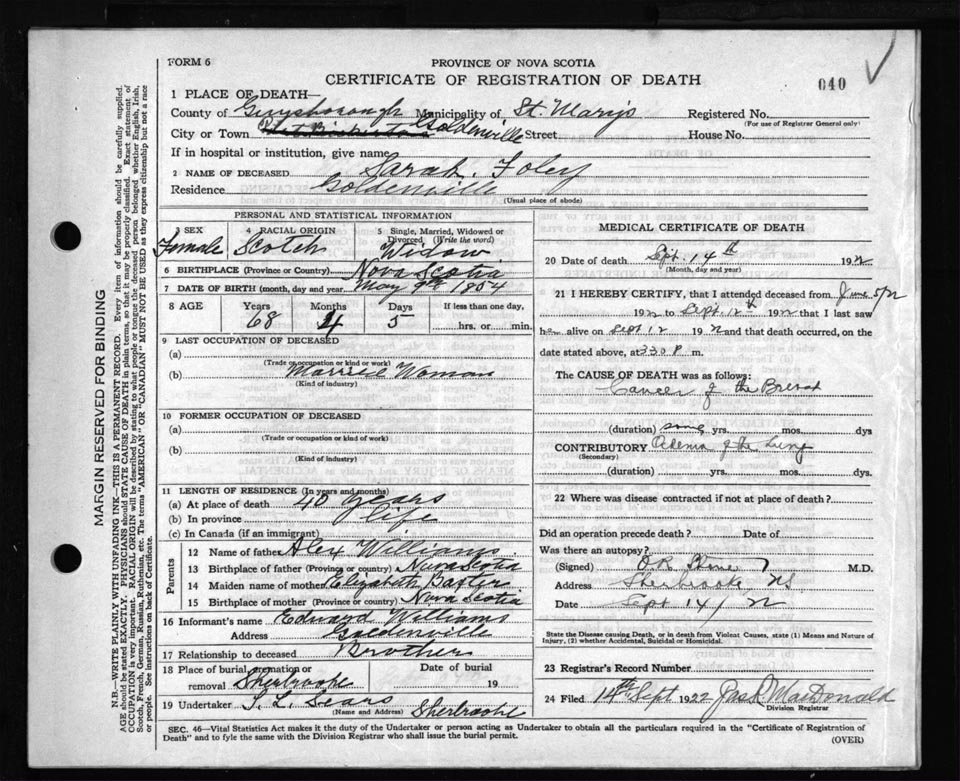 FORM 6
PROVINCE OF NOVA SCOTIA
CERTIFICATE OF REGISTRATION OF DEATH
040
1 PLACE OF DEATH—
County of Guysborough Municipality of St. Mary's Registered No.
(For use of Registrar General only)
City or Town Goldenville Street House No.
If in hospital or institution, give name
2 NAME OF DECEASED Sarah Foley
Residence Goldenville
(Usual place of abode)
PERSONAL AND STATISTICAL INFORMATION
3 SEX Female
4 RACIAL ORIGIN Scotch
5 Single, Married, Widowed or Divorced (Write the word) Widow
6 BIRTHPLACE (Province or Country) Nova Scotia
7 DATE OF BIRTH (month, day and year) May 9th 1854
8 AGE Years Months Days If less than one day,
68 4 5 hrs. or min.
9 LAST OCCUPATION OF DECEASED
(a)
(Trade or occupation or kind of work)
(b) Married Woman
(Kind of industry)
10 FORMER OCCUPATION OF DECEASED
(a)
(Trade or occupation or kind of work)
(b)
(Kind of industry)
11 LENGTH OF RESIDENCE (In years and months)
(a) At place of death 40 years
(b) In province life
(c) In Canada (if an immigrant)
Parents
12 Name of father Alex Williams
13 Birthplace of father (Province or country) Nova Scotia
14 Maiden name of mother Elizabeth Baxter
15 Birthplace of mother (Province or country) Nova Scotia
16 Informant's name Edward Williams
Address Goldenville
17 Relationship to deceased Brother
18 Place of burial, cremation or Date of burial
removal Sherbrooke 19
19 Undertaker S. L. Sears
(Name and Address) Sherbrooke
MEDICAL CERTIFICATE OF DEATH
20 Date of death Sept. 14th 1922
(Month, day and year)
21 I HEREBY CERTIFY, that I attended deceased from June 5/22
1922 to Sept. 12th 1922 that I last saw
her alive on Sept 12 1922 and that death occurred, on the
date stated above, at 3 30 P m.
The CAUSE OF DEATH was as follows:
Cancer of the Breast
(duration) some yrs. mos. dys
CONTRIBUTORY Odema of the Lung
(Secondary)
(duration) yrs. mos. dys.
22 Where was disease contracted if not at place of death?
Did an operation precede death? Date of
Was there an autopsy?
(Signed) M.D.
Address Sherbrooke NS
Date Sept 14/22
State the Disease causing Death, or in death from Violent Causes, state (1) Means and Nature of
Injury, (2) whether Accidental, Suicidal or Homicidal.
23 Registrar's Record Number
24 Filed 14th Sept 1922 Jas D MacDonald
Division Registrar
SEC. 46—Vital Statistics Act makes it the duty of the Undertaker or person acting as Undertaker to obtain all the particulars required in the "Certificate of Registration of
Death" and to fyle the same with the Division Registrar who shall issue the burial permit.
(OVER)
MARGIN RESERVED FOR BINDING
N.B.—WRITE PLAINLY WITH UNFADING INK—THIS IS A PERMANENT RECORD. Every item of information should be carefully supplied.
AGE should be stated EXACTLY. PHYSICIANS should STATE CAUSE OF DEATH in plain terms, so that it may be properly classified. Exact statement of
OCCUPATION is very important. RACIAL ORIGIN will be described by stating to what people or tongue the deceased person belonged whether English, Irish,
Scotch, French, German, Russian, Ruthenian, etc. The terms "AMERICAN" or "CANADIAN" MUST NOT BE USED as they express citizenship but not a race
or people. See instructions on back of Certificate.